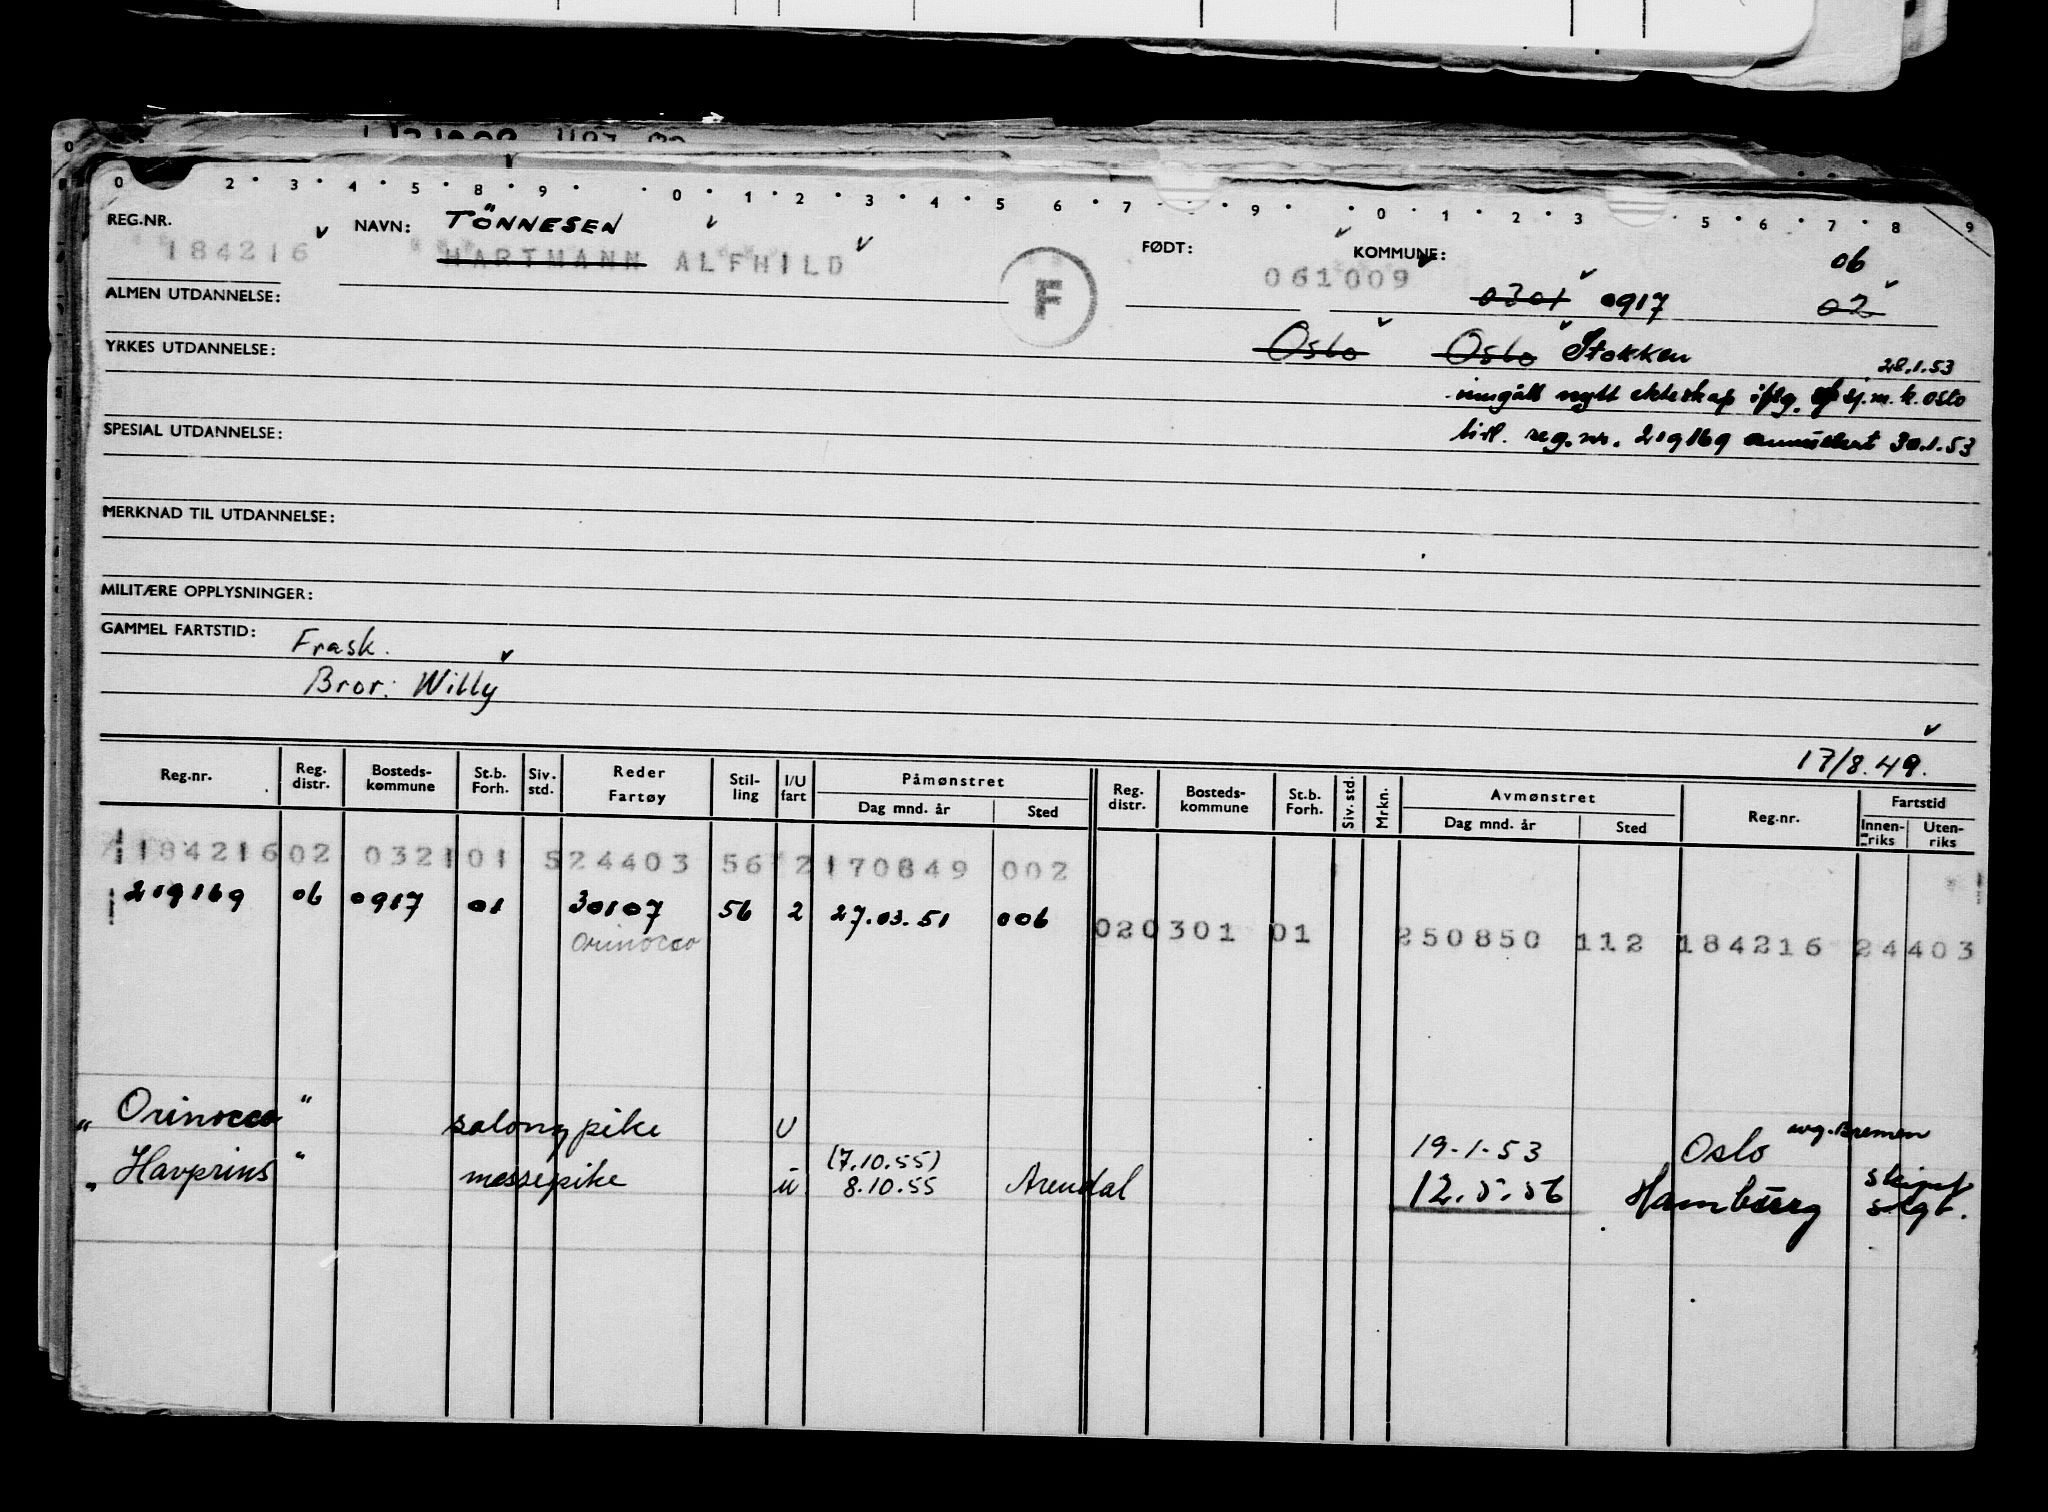 0 2 3 4 5 8 9 0 1 2 3 4 5 6 7 9 0 1 2 3 5 6 7 8 9
REG.NR. NAVN: TÖNNESEN FØDT: KOMMUNE: 06
184216 HARTMANN ALFHILD F 061009 0301 0917 02
ALMEN UTDANNELSE:
Oslo Oslo Stokken 28.1.53
YRKES UTDANNELSE:
inngått nytt ekteskap iflg. sj.m.k. oslo
SPESIAL UTDANNELSE: tidl. reg.nr. 219169 annullert 30.1.53
MERKNAD TIL UTDANNELSE:
MILITÆRE OPPLYSNINGER:
GAMMEL FARTSTID: Frask.
Bror: Willy
17/8.49.
Reg.nr. Reg. distr. Bosteds-kommune St.b. Forh. Siv. std. Reder Fartøy Stil-ling I/U fart Påmønstret Dag mnd. år Sted Reg. distr. Bosteds-kommune St.b. Forh. Siv. std. Mrkn. Avmønstret Dag mnd. år Sted Reg.nr. Fartstid Innen-riks Uten-riks
184216 02 0321 01 524403 56 2 170849 002
219169 06 0917 01 30107 56 2 27.03.51 006
020301 01 250850 112 184216 24403
Orinocco
" Orinocco " salongpike U 19.1.53 Oslo avg. Bremen
" Havprins " messepike u (7.10.55) 8.10.55 Arendal 12.5.56 Hamburg skipet solgt.